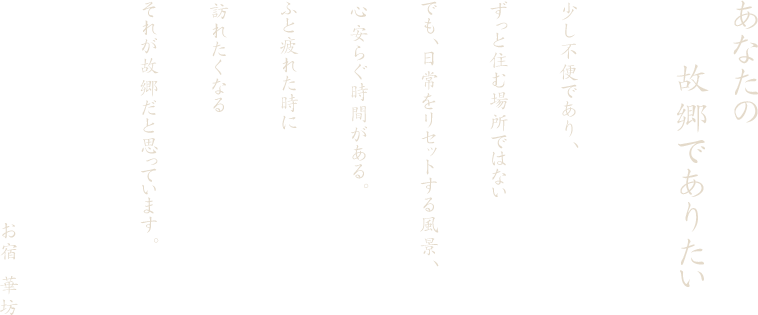 あなたの
故郷でありたい
少し不便であり、
ずっと住む場所ではない
でも、日常をリセットする風景、
心安らぐ時間がある。
ふと疲れた時に
訪れたくなる
それが故郷だと思っています。
お宿 華坊